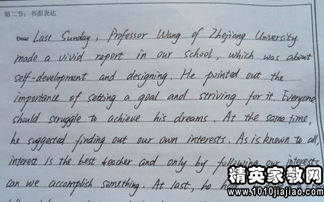 第二节：书面表达
Last Sunday, Professor Wang of Zhejiang University
made a vivid report in our school, which was about
self-development and designing. He pointed out the
importance of setting a goal and striving for it. Everyone
should struggle to achieve his dreams. At the same time,
he suggested finding out our own interests. As is known to all,
interest is the best teacher and only by following our interests
can we accomplish something. At last, he
精英家教网
www.1010jiajiao.com